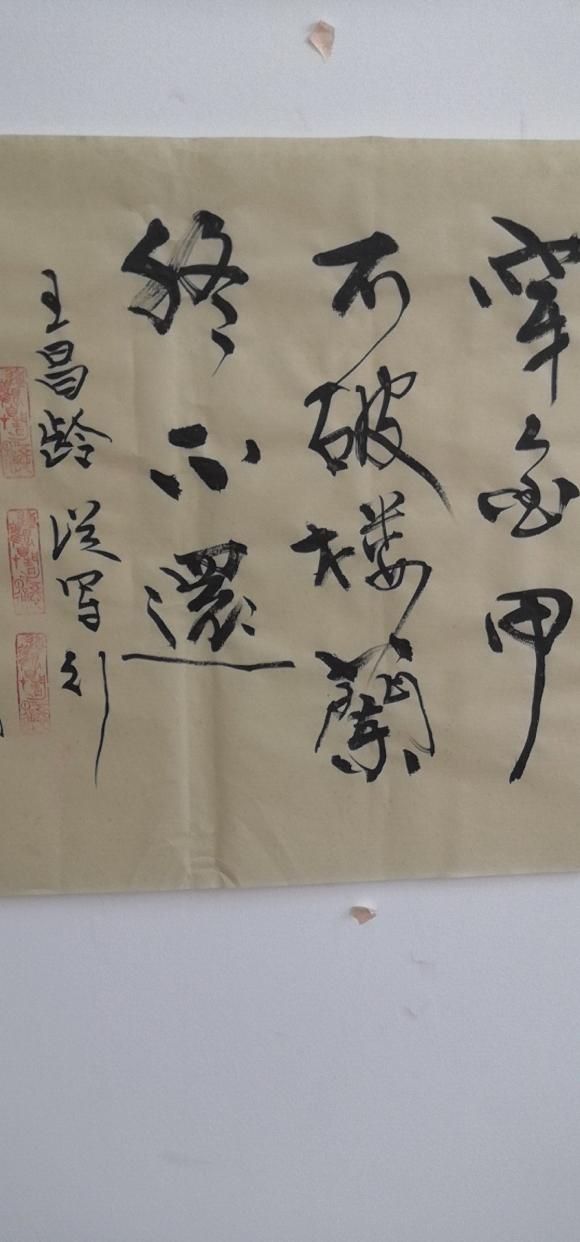 穿金甲
不破楼蘭
终不還
王昌龄 从军行